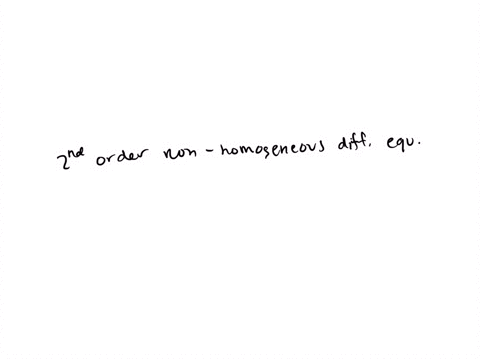 2nd order non-homogeneous diff. equ.